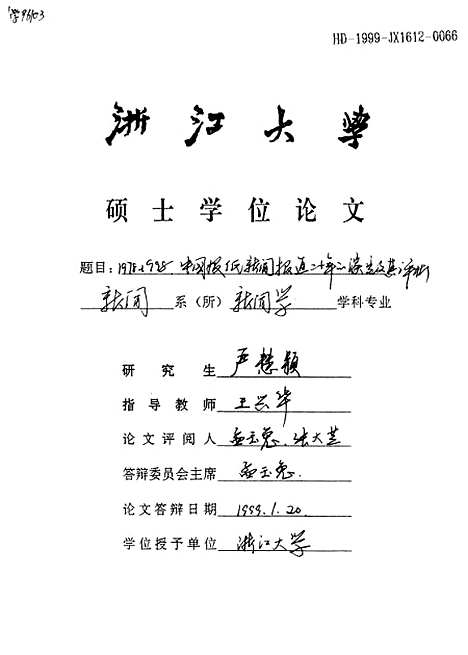 学96103
HD-1999-JX1612-0066
浙江大学
硕士学位论文
题目:1978-1998 中国报纸新闻报道二十年的演变及其评析
新闻 系(所) 新闻学 学科专业
研究生 严慧颖
指导教师 王兴华
论文评阅人 孟玉兔、张大芝
答辩委员会主席 孟玉兔.
论文答辩日期 1999.1.20.
学位授予单位 浙江大学